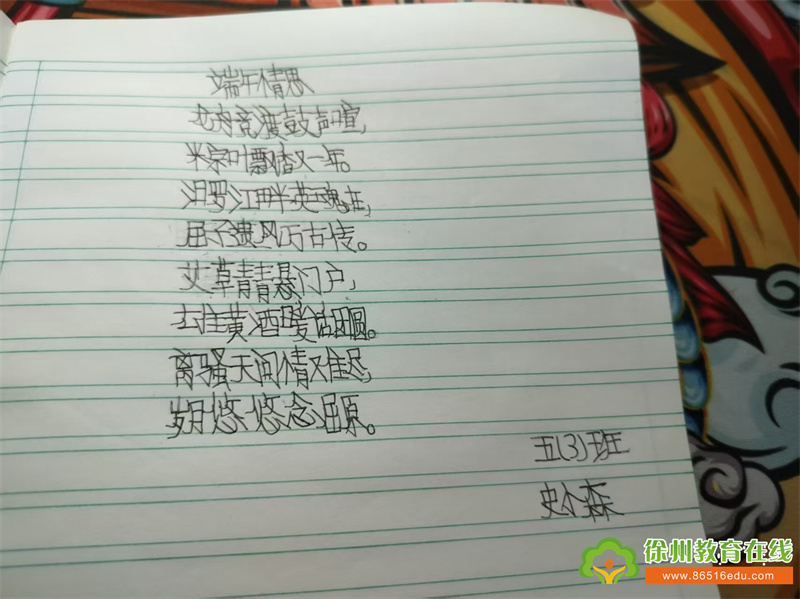 端午情思
龙舟竞渡鼓声喧,
米粽叶飘香又一年。
汨罗江畔英魂在,
屈子遗风万古传。
艾草青青悬门户,
雄黄酒暖话团圆。
离骚天问情难尽,
岁月悠悠念屈原。
五(3)班
史尒森
徐州教育在线
www.86516edu.com